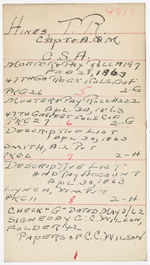 4910
HINES, T. R.
CAPT & AQM
C.S.A.
MUSTER & PAY ROLL A 1197
FEB 28, 1863
47TH GA REGT VOLS CVF
PKG 26 5 2-G
MUSTER & PAY ROLL A
APL 30, 1863
47TH GA REGT VOLS CVF
PKG 27 6 2-G
DESCRIPTIVE LIST
APL 30, 1863
SMITH, A. J. PVT
PKG 7 2-H
DESCRIPTIVE LIST
AND PAY ACCOUNT
APL 30, 1863
LYNCH, PVT
PKG 11 8 2-H
CHECK "G" DATED MAY 2/62
SIGNED BY C.C. WILSON
FOLDER 42
PAPERS OF C.C. WILSON